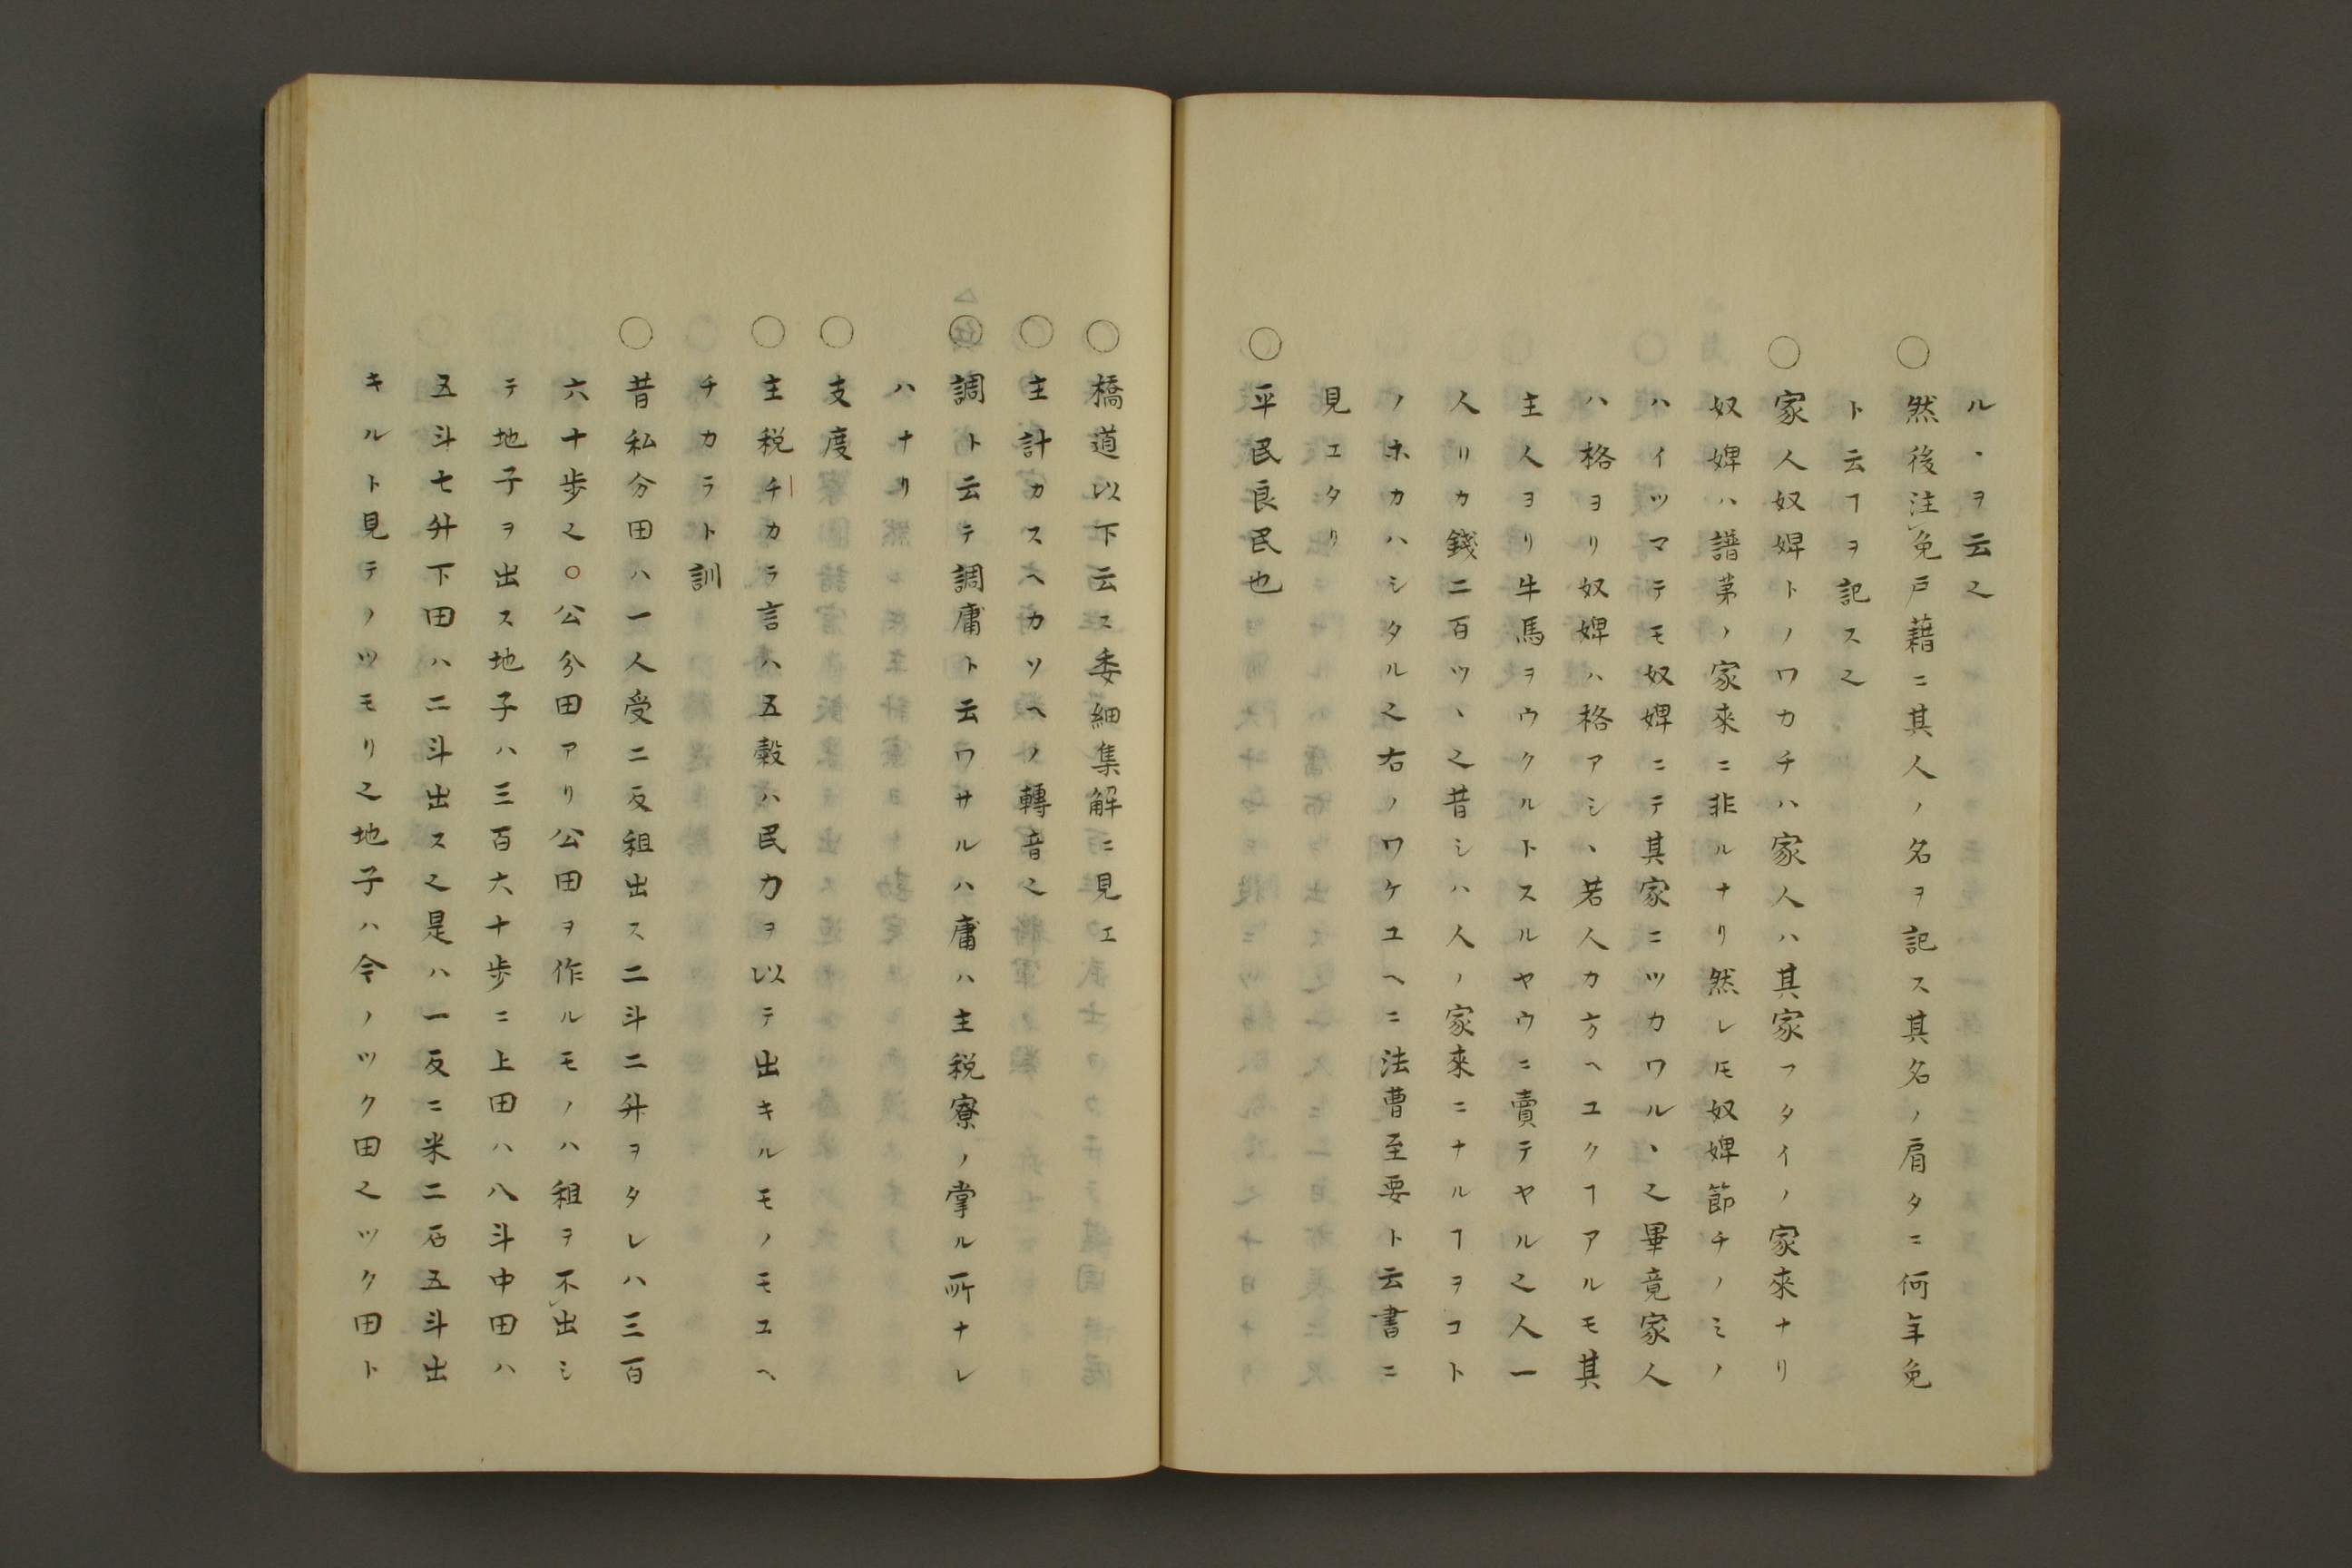 ル・ヲ云之
○然後注免戸藉ニ其人ノ名ヲ記ス其名ノ肩タニ何年免
ト云ヿヲ記ス之
○家人奴婢トノワカチハ家人ハ其家フタイノ家來ナリ
奴婢ハ譜苐ノ家來ニ非ルナリ然レ𪜈奴婢節チノミノ
ハイツマテモ奴婢ニテ其家ニツカワルヽ之畢竟家人
ハ格ヨリ奴婢ハ格アシヽ若人カ方ヘユクヿアルモ其
主人ヨリ牛馬ヲウクルトスルヤウニ賣テヤル之人一
人リカ錢二百ツヽ之昔シハ人ノ家來ニナルヿヲコト
ノホカハシタル之右ノワケユヘニ法曹至要ト云書ニ
見エタリ
○平民良民也
○橋道以下云ス委細集解ニ見エ
○主計カスヘカソヘノ轉音之
○調ト云テ調庸ト云ワサルハ庸ハ主税寮ノ掌ル所ナレ
ハナリ
○支度
○主税チカラ言ハ五穀ハ民力ヲ以テ出キルモノモユヘ
チカラト訓
○昔私分田ハ一人受二反租出ス二斗二升ヲタレハ三百
六十歩之○公分田アリ公田ヲ作ルモノハ租ヲ不出シ
テ地子ヲ出ス地子ハ三百六十歩ニ上田ハ八斗中田ハ
五斗七升下田ハ二斗出ス之是ハ一反ニ米二石五斗出
キルト見テノツモリ之地子ハ今ノツク田之ツク田ト